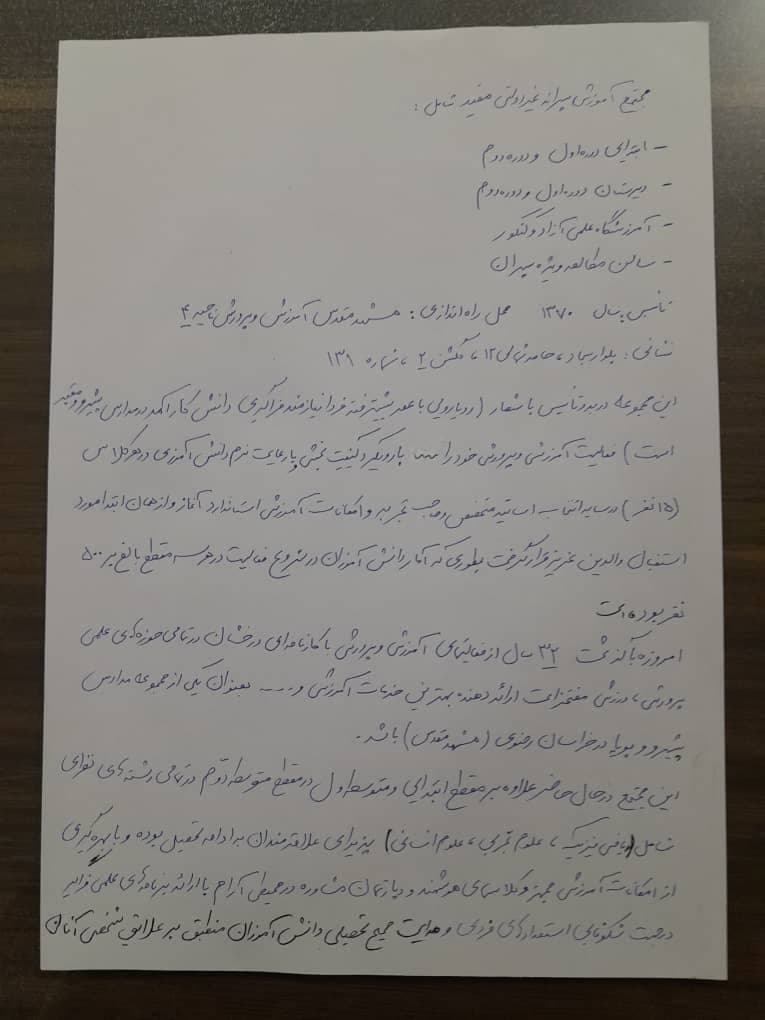 مجتمع آموزشی پسرانه غیردولتی مفید شامل :
- ابتدایی دوره اول و دوره دوم
- دبیرستان دوره اول و دوره دوم
- آموزشگاه علمی آزاد و کنکور
- سالن مطالعه ویژه پسران
تأسیس سال ۱۳۷۰ محل راه اندازی : مشهد مقدس آموزش و پرورش ناحیه ۴
نشانی : بلوار سجاد ، حامد شمالی ۱۲ ، گلشن ۲ ، شماره ۱۳۱
این مجموعه در بدو تأسیس با شعار ( رویارویی با عصر پیشرفته فردا نیازمند فراگیری دانش کارآمد در مدارس پیشرو و مفید
است ) فعالیت آموزشی و پرورشی خود را با رویکرد کیفیت بخشی و با رعایت نرم دانش آموزی در هر کلاس
( ۱۵ نفر ) در سایه انتخاب اساتید متخصص و صاحب تجربه و امکانات آموزشی استاندارد آغاز و از همان ابتدا مورد
استقبال والدین عزیز قرار گرفت بطوری که آمار دانش آموزان در شروع فعالیت در هر سه مقطع بالغ بر ۵۰۰
نفر بوده است
امروزه با گذشت ۳۲ سال از فعالیتهای آموزشی و پرورشی با کارنامه ای درخشان در تمامی حوزه های علمی
پرورشی ، ورزشی مفتخر است ارائه دهنده بهترین خدمات آموزشی و .... بعنوان یکی از مجموعه مدارس
پیشرو و پویا در خراسان رضوی ( مشهد مقدس ) باشد .
این مجتمع در حال حاضر علاوه بر مقطع ابتدایی و متوسطه اول در مقطع متوسطه دوم در تمامی رشته های نظری
شامل ( ریاضی فیزیک ، علوم تجربی ، علوم انسانی ) پذیرای علاقه مندان به ادامه تحصیل بوده و با بهره گیری
از امکانات آموزشی مجهز و کلاسهای هوشمند و دپارتمان مشاوره در محیطی آرام با ارائه برنامه های علمی فراگیر
در جهت شکوفایی استعدادهای فردی و هدایت صحیح تحصیلی دانش آموزان منطبق بر علایق شخصی آنان